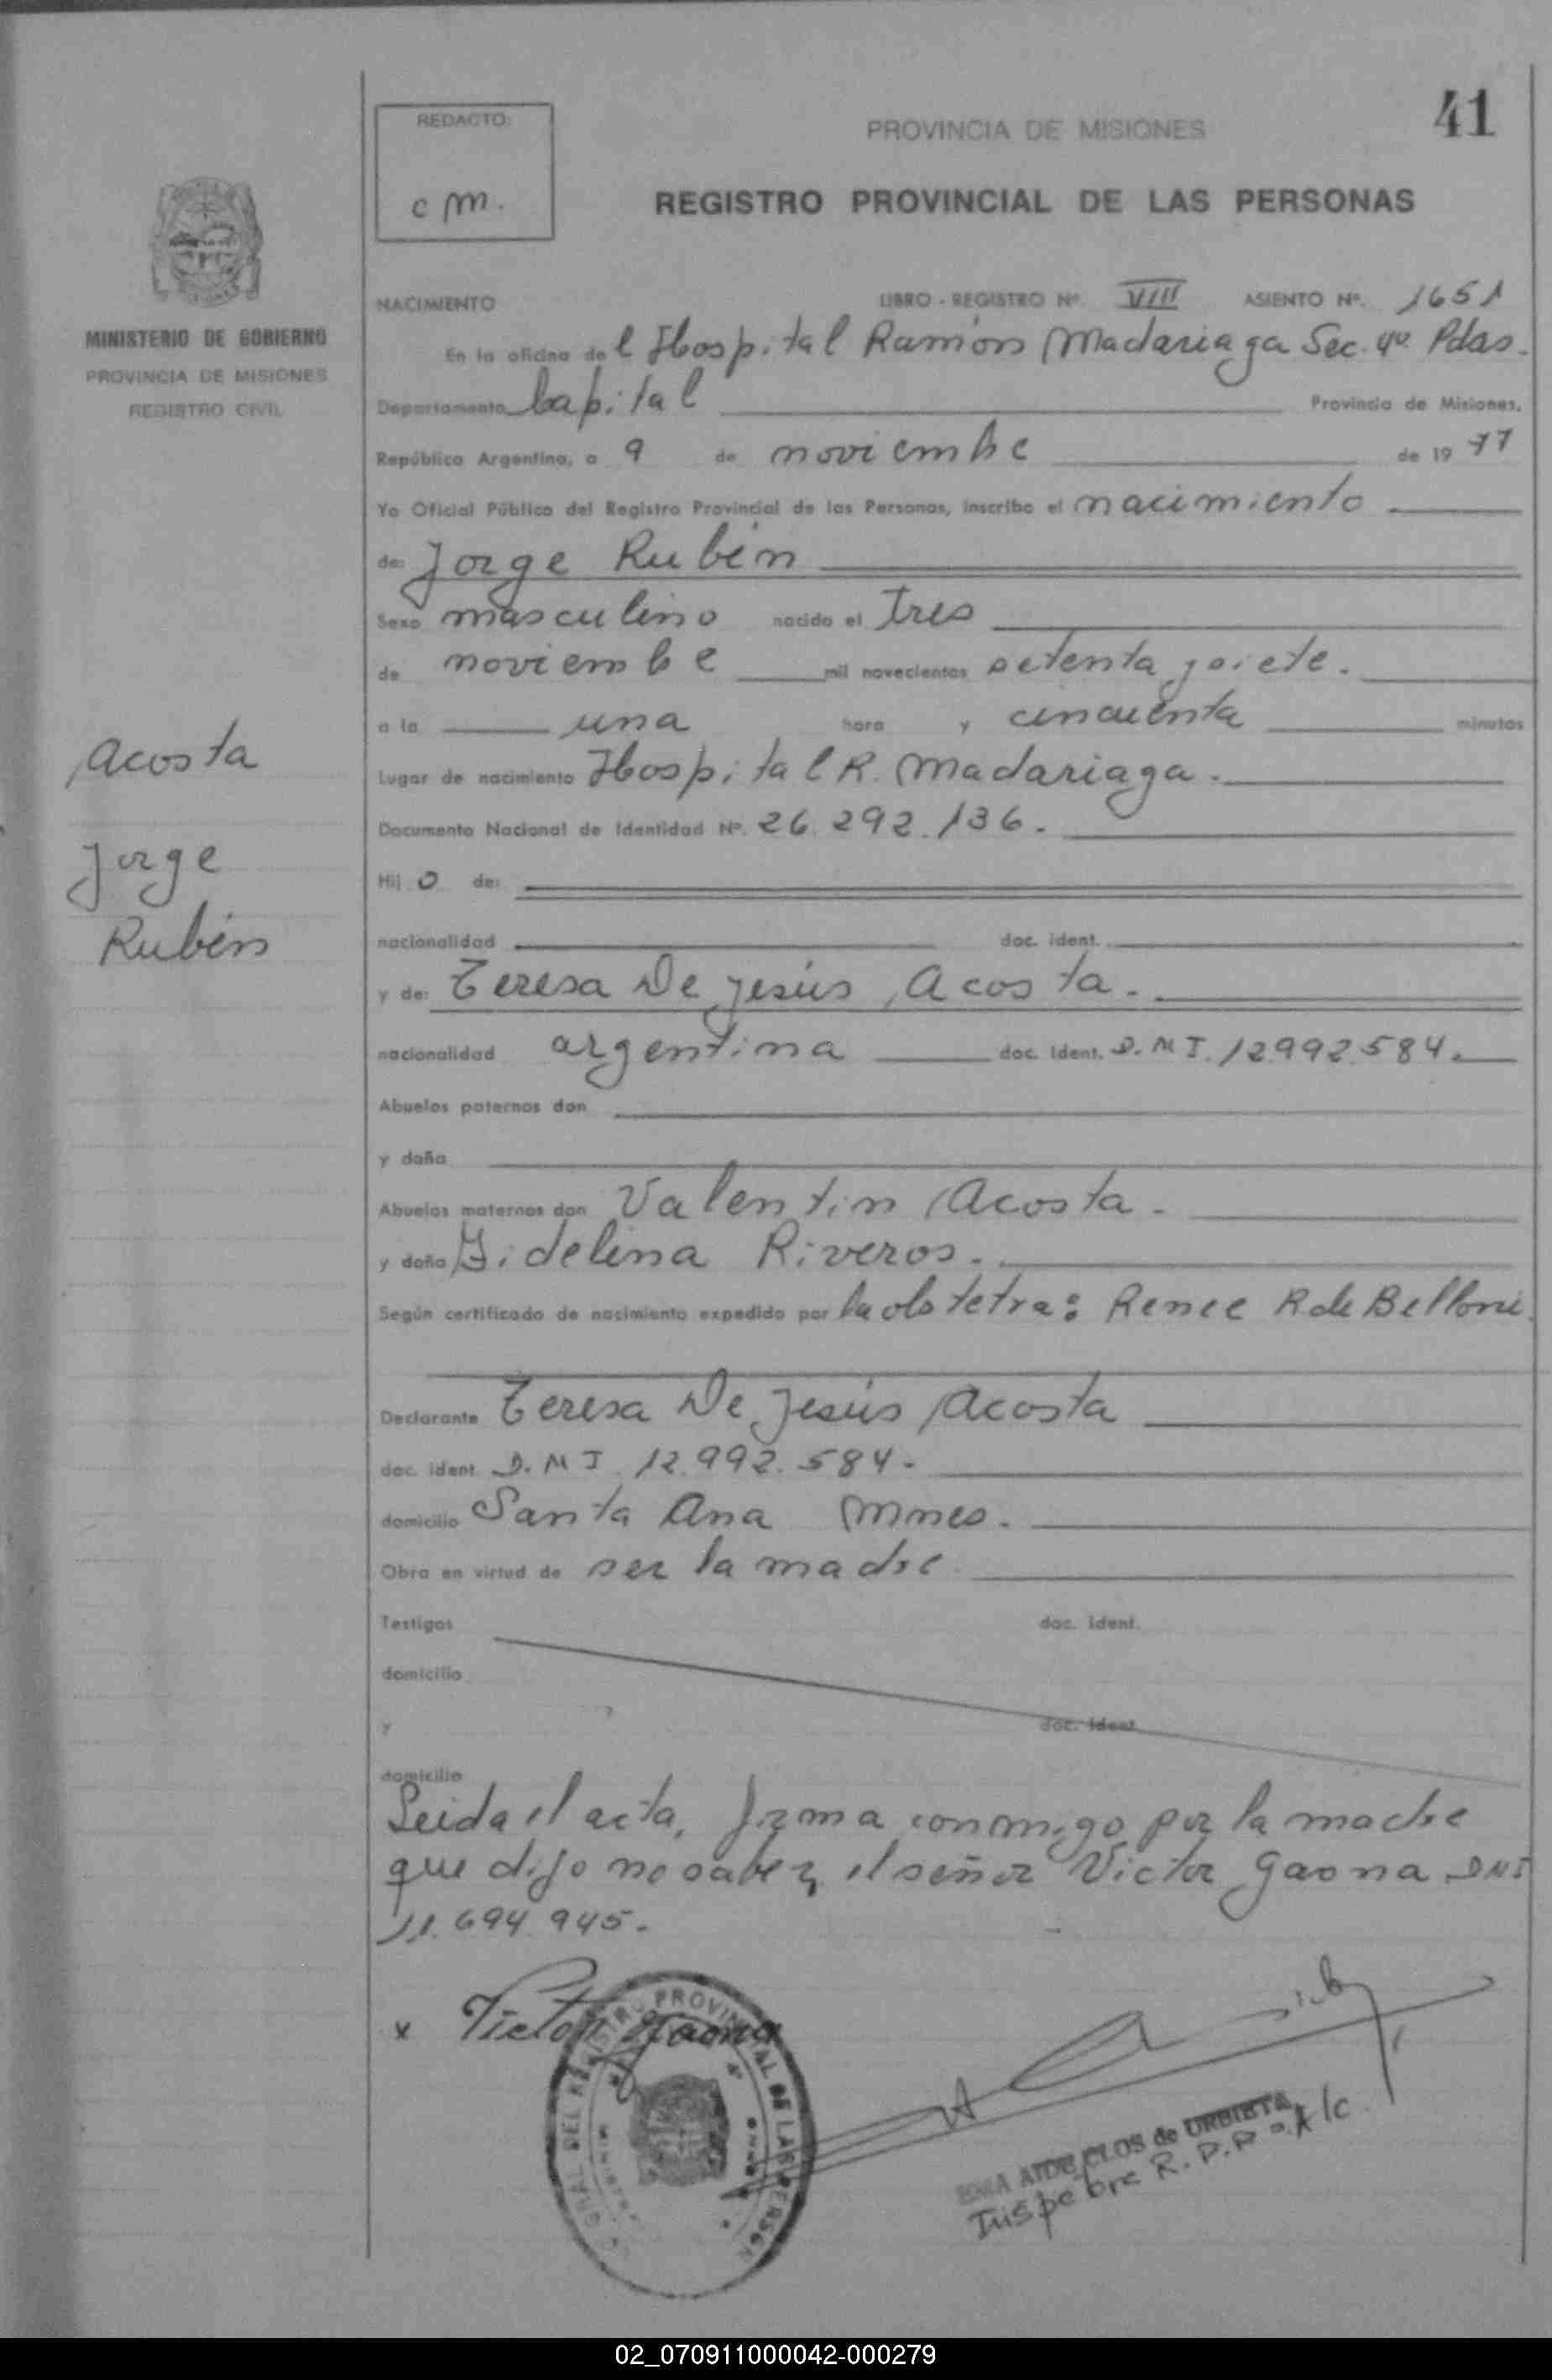 41
REDACTO:
c m.
PROVINCIA DE MISIONES
REGISTRO PROVINCIAL DE LAS PERSONAS
MINISTERIO DE GOBIERNO
PROVINCIA DE MISIONES
REGISTRO CIVIL
Acosta
Jorge
Rubén
NACIMIENTO LIBRO - REGISTRO Nº VIII ASIENTO Nº. 1651
En la oficina del Hospital Ramón Madariaga Sec. 4º Pdas.
Departamento Capital Provincia de Misiones,
República Argentina, a 9 de noviembre de 19 77
Yo Oficial Público del Registro Provincial de las Personas, inscribo el nacimiento
de: Jorge Rubén
Sexo masculino nacido el tres
de noviembre mil novecientos setenta y siete.
a la una hora y cincuenta minutos
Lugar de nacimiento Hospital R. Madariaga.
Documento Nacional de Identidad Nº. 26.292.136.
Hij o de:
nacionalidad doc. ident.
y de: Teresa De Jesús Acosta.
nacionalidad argentina doc. ident. D.N I. 12.992.584.
Abuelos paternos don
y doña
Abuelos maternos don Valentin Acosta.
y doña Fidelina Riveros.
Según certificado de nacimiento expedido por la obstetra: Renee R de Belloni.
Declarante Teresa De Jesús Acosta
doc. ident. D.N I. 12.992.584.
domicilio Santa Ana Mnes.
Obra en virtud de ser la madre.
Testigos doc. ident.
domicilio
y doc. ident.
domicilio
Leida el acta, firma conmigo por la madre
que dijo no saber, el señor Victor Gaona DNI
11.694.945.
x Victor Gaona
GRAL DEL REGISTRO PROVINCIAL DE LAS PERSONAS
de URBIETA
R. P. P. A/c.
02_070911000042-000279